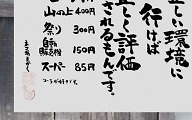 正しい環境に
行けば
正しく評価
されるものです。
山の上 400円
祭り 300円
自動販売機 150円
スーパー 85円